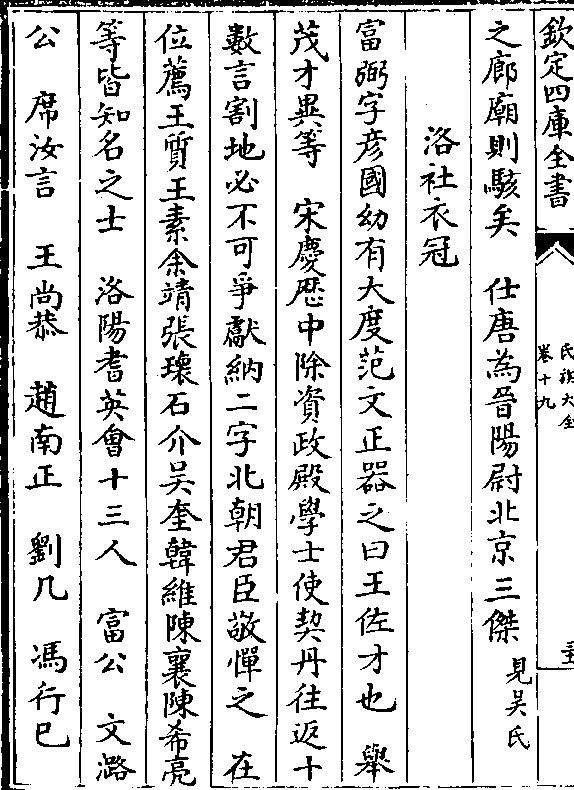 欽定四庫全書
氏族大全
卷十九
之廊廟則駭矣　仕唐為晉陽尉北京三傑見吳氏
洛社衣冠
富弼字彦國幼有大度范文正器之曰王佐才也　舉
茂才異等　宋慶厯中除資政殿學士使契丹往返十
數言割地必不可爭獻納二字北朝君臣敬憚之　在
位薦王質王素余靖張瓌石介吴奎韓維陳襄陳希亮
等皆知名之士　洛陽耆英會十三人　富公　文潞
公　席汝言　王尚恭　趙南正　劉几　馮行已